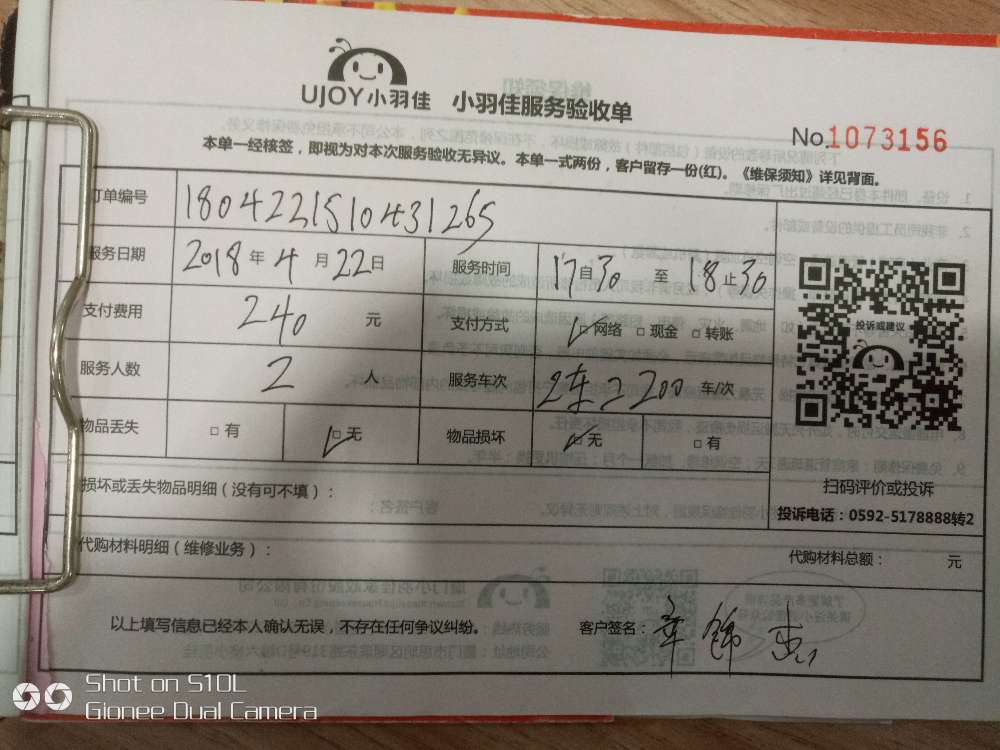 UJOY小羽佳 小羽佳服务验收单
No.1073156
本单一经核签，即视为对本次服务验收无异议。本单一式两份，客户留存一份(红)。《维保须知》详见背面。
订单编号 1804221510431265
服务日期 2018年4月22日 服务时间 17自30至 8止30
支付费用 240 元 支付方式 □网络 □现金 □转账
服务人数 2 人 服务车次 车/次
物品丢失 □有 □无 物品损坏 □无 □有
投诉或建议
扫码评价或投诉
投诉电话：0592-5178888转2
损坏或丢失物品明细（没有可不填）：
代购材料明细（维修业务）： 代购材料总额： 元
以上填写信息已经本人确认无误，不存在任何争议纠纷。 客户签名：
Shot on S10L
Gionee Dual Camera